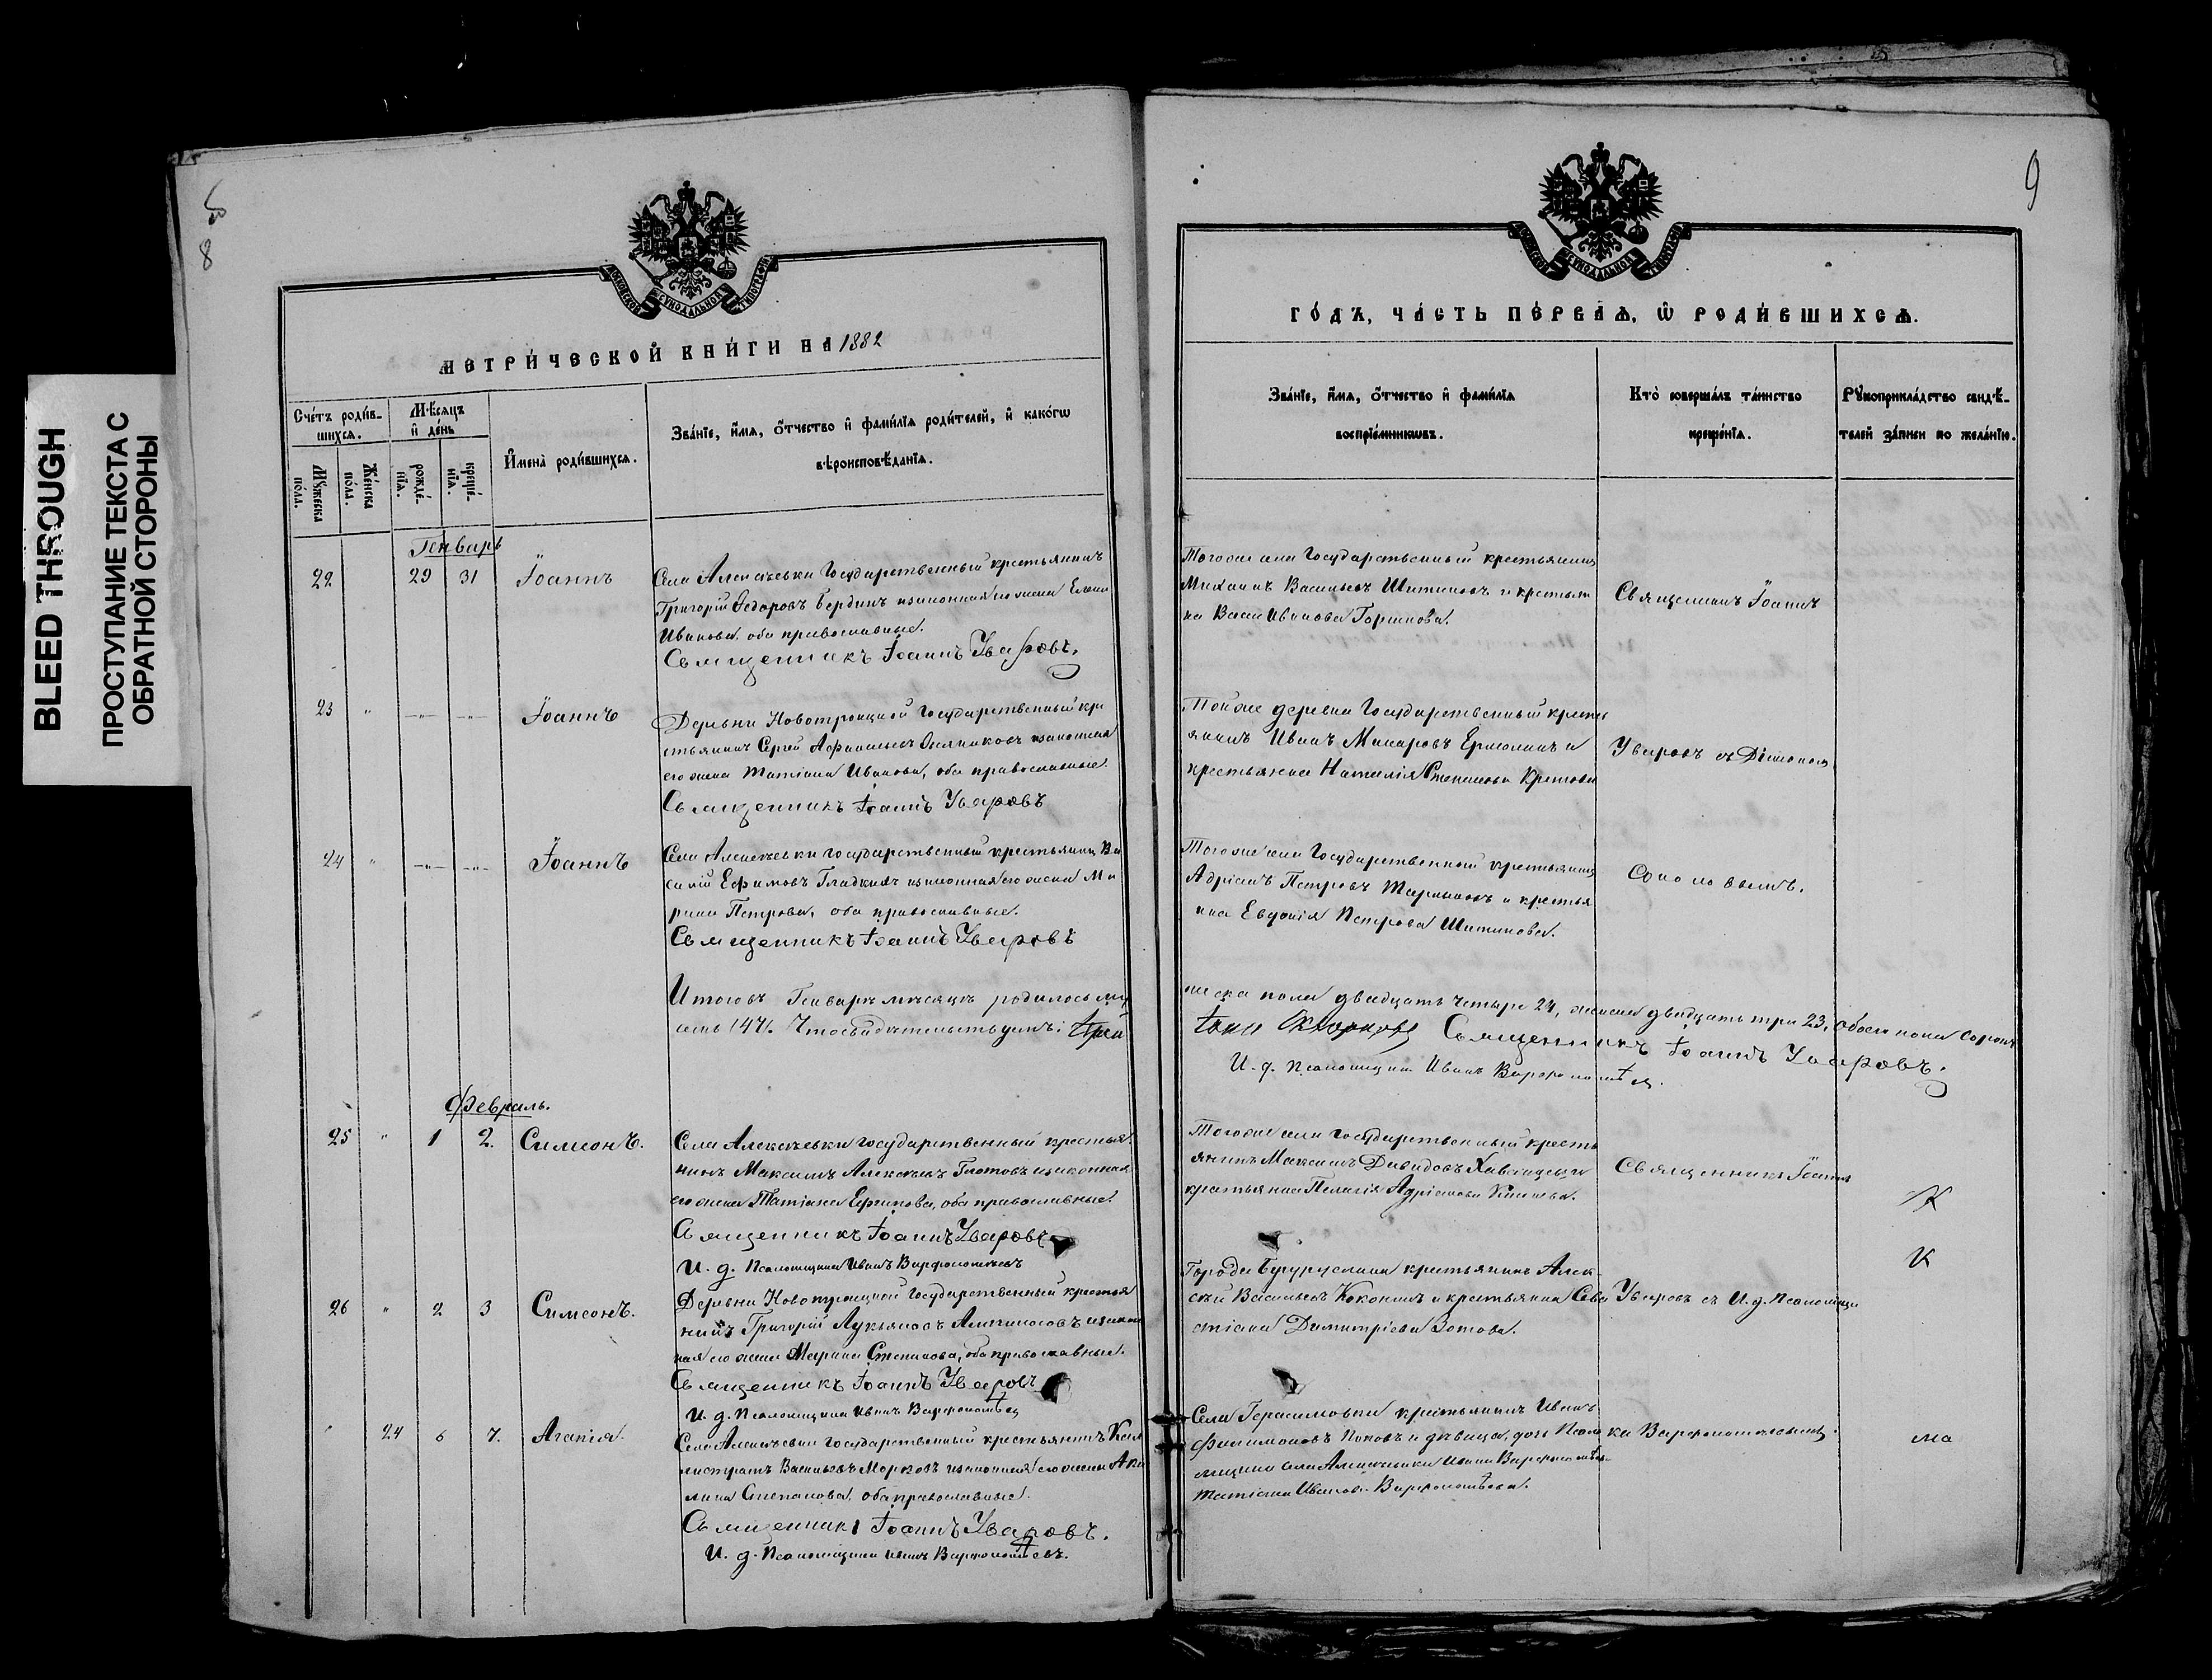 BLEED THROUGH
ПРОСТУПАНИЕ ТЕКСТА С
ОБРАТНОЙ СТОРОНЫ
8
МОСКОВСКОЙ СУНОДАЛЬНОЙ ТИПОГРАФІИ
МЕТРИ́ЧЕСКОЙ КНИ́ГИ НА 1882
Сче́тъ роди́в-
шихся.
Мѣ́сяцъ
и҆ де́нь
Мꙋ́жеска
по́ла.
Же́нска
по́ла.
рожде́-
нїѧ.
креще́-
нїѧ.
И҆мена̀ роди́вшихся.
Зва́нїе, и҆́мѧ, ѻ҆́тчество и҆ фами́лїѧ роди́телей, и҆ како́гѡ
вѣроисповѣ́данїѧ.
Генварь
22 29 31 Іоаннъ
Села Алексѣевки Государственный крестьянинъ
Григорій Ѳедоровъ Бердинъ и законная его жена Елена
Иванова, оба православные.
Священникъ Іоаннъ Уваровъ.
23 " -"- -"- Іоаннъ
Деревни Новотроицкой Государственный кре
стьянинъ Сергѣй и законная
его жена Татіана Иванова, оба православные.
Священникъ Іоаннъ Уваровъ
24 " -"- -"- Іоаннъ
Села Алексѣевки государственный крестьянинъ Ва
силій Ефимовъ Гладкихъ и законная его жена Ма
рина Петрова, оба православные.
Священникъ Іоаннъ Уваровъ
Итого въ Генварѣ мѣсяцѣ родилось му
семь (47). Что свидѣтельствуемъ:
Февраль.
25 " 1 2. Симеонъ.
Села Алексѣевки государственный крестья
нинъ Максимъ Алексѣевъ Глотовъ и законная
его жена Татіана Ефимова, оба православные.
Священникъ Іоаннъ Уваровъ
И. д. Псаломщика Иванъ Варфоломѣевъ
26 " 2 3 Симеонъ.
Деревни Новотроицкой государственный крестья
нинъ Григорій Лукьяновъ и закон
ная его жена Марина Степанова, оба православные.
Священникъ Іоаннъ Уваровъ
И. д. Псаломщика Иванъ Варфоломѣев
" 24 6 7. Агапія.
Села Алексѣевки государственный крестьянинъ Кал
листратъ Васильевъ Морковъ и законная его жена Аку
лина Степанова, оба православные.
Священникъ Іоаннъ Уваровъ.
И. д. Псаломщика Иванъ Варфоломѣевъ.
9
МОСКОВСКОЙ СУНОДАЛЬНОЙ ТИПОГРАФІИ
ГО́ДЪ, ЧА́СТЬ ПЕ́РВАѦ, Ѡ҆ РОДИ́ВШИХСѦ.
Зва́нїе, и҆́мѧ, ѻ҆́тчество и҆ фами́лїѧ
воспрїе́мниковъ.
Кто̀ соверша́лъ та́инство
креще́нїѧ.
Рꙋкоприкла́дство свидѣ́-
телей за́писи по жела́нїю.
Того же села Государственный крестьянинъ
Михаилъ Васильевъ Шитиковъ и крестьян
ка Васи Иванова Горшкова.
Священникъ Іоаннъ
Той же деревни Государственный кресть
янинъ Иванъ Макаровъ Ермолинъ и
крестьянка Наталія Степанова Кретова
Уваровъ съ Діакономъ
Того же села Государственной крестьянинъ
Адріанъ Петровъ и крестья
нка Евдокія Петрова Шитикова.
Соколовымъ.
жеска пола двадцать четыре 24, женска двадцать три 23, обоего пола сорокъ
Священникъ Іоаннъ Уваровъ.
И. д. Псаломщика Иванъ Варфоломѣев.
Того же села государственный кресть
янинъ Максимъ Давидовъ и
крестьянка Пелагія Адріанова
Священникъ Іоаннъ
Города Бугуруслана крестьянинъ Алек
сѣй Васильевъ Коконинъ и крестьянка Сева
стіана Димитріева Зотова.
Уваровъ съ И. д. Псаломщи
Села Герасимовки крестьянинъ Иванъ
Филимоновъ Поповъ и дѣвица, дочь Псало
мщика села Алексѣевки Ивана Варфоломѣева
Татіана Иванова Варфоломѣева.
ка Варфоломѣевымъ.